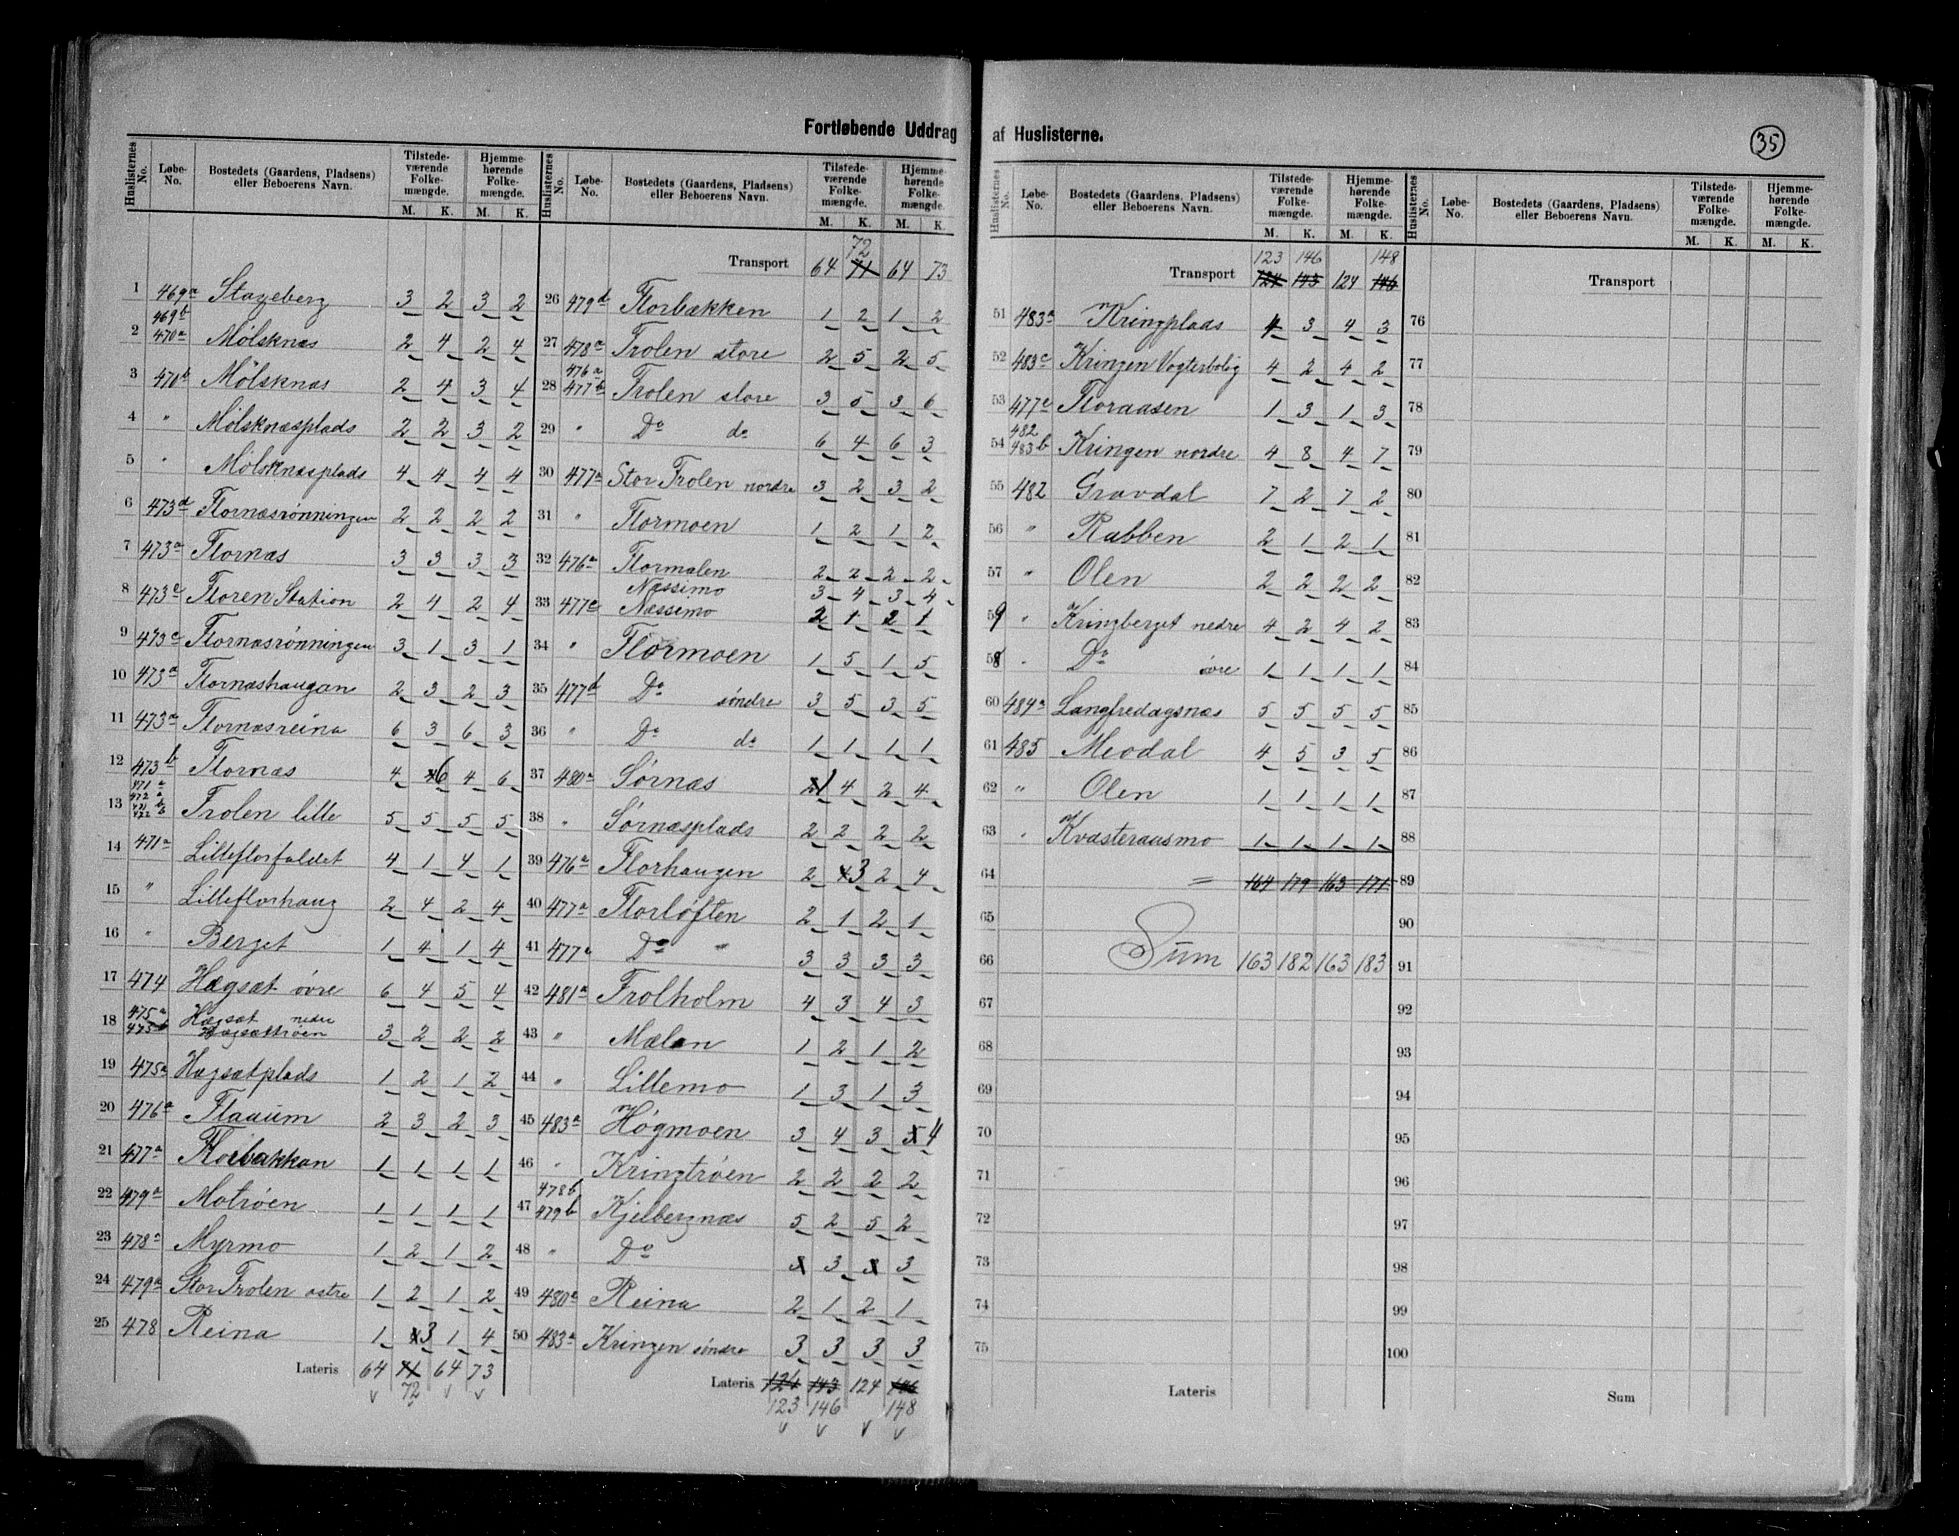 Fortløbende Uddrag af Huslisterne.
35
Huslisternes No. Løbe-No. Bostedets (Gaardens, Pladsens) eller Beboerens Navn. Tilstedeværende Folkemængde. M. K. Hjemmehørende Folkemængde. M. K.
1 469a Stageberg 3 2 3 2
2 469b 470a Mølsknæs 2 4 2 4
3 470b Mølsknæs 2 4 3 4
4 " Mølsknæsplads 2 2 3 2
5 " Mølsknæsplads 4 4 4 4
6 473d Flornæsrønningen 2 2 2 2
7 473a Flornæs 3 3 3 3
8 473e Floren Station 2 4 2 4
9 473c Flornæsrønningen 3 1 3 1
10 473a Flornæshaugan 2 3 2 3
11 473a Flornæsreina 6 3 6 3
12 473b Flornæs 4 6 4 6
13 471a 472a 471b 472b Frolen lille 5 5 5 5
14 471a Lilleflorfaldet 4 1 4 1
15 " Lilleflorhaug 2 4 2 4
16 " Berget 1 4 1 4
17 474 Hægsæt øvre 6 4 5 4
18 475a 475b Hægsæt nedre Hægsættrøen 3 2 2 2
19 475a Hægsætplads 1 2 1 2
20 476a Flaaum 2 3 2 3
21 477a Florbakkan 1 1 1 1
22 479a Motrøen 1 1 1 1
23 478a Myrmo 1 2 1 2
24 479a Stor Frolen østre 1 2 1 2
25 478 Reina 1 3 1 4
Lateris 64 71 64 73
72
Huslisternes No. Løbe-No. Bostedets (Gaardens, Pladsens) eller Beboerens Navn. Tilstedeværende Folkemængde. M. K. Hjemmehørende Folkemængde. M. K.
72
Transport 64 71 64 73
26 479d Florbækken 1 2 1 2
27 478a Frolen store 2 5 2 5
28 476a 477b Frolen store 3 5 3 6
29 " Do do 6 4 6 3
30 477a Stor Frolen nordre 3 2 3 2
31 " Flormoen 1 2 1 2
32 476a Flormælen 2 2 2 2
Næssimo 3 4 3 4
33 477c Næssimo 2 1 2 1
34 " Flormoen 1 5 1 5
35 477d Do søndre 3 5 3 5
36 " Do do 1 1 1 1
37 480a Sørnæs 1 4 2 4
38 " Sørnæsplads 2 2 2 2
39 476a Florhaugen 2 3 2 4
40 477a Florløften 2 1 2 1
41 477a Do " 3 3 3 3
42 481a Frolholm 4 3 4 3
43 " Mælan 1 2 1 2
44 " Lillemo 1 3 1 3
45 483a Høgmoen 3 4 3 4
46 " Kringtrøen 2 2 2 2
47 478b 479b Kjelbergnæs 5 2 5 2
48 " Do 3 3
49 480a Reina 2 1 2 1
50 483a Kringen søndre 3 3 3 3
Lateris 124 143 124 146
123 146 148
Huslisternes No. Løbe-No. Bostedets (Gaardens, Pladsens) eller Beboerens Navn. Tilstedeværende Folkemængde. M. K. Hjemmehørende Folkemængde. M. K.
123 146 148
Transport 124 143 124 146
51 483a Kringplads 4 3 4 3
52 483c Kringen Vogterbolig 4 2 4 2
53 477e Floraasen 1 3 1 3
54 482 483b Kringen nordre 4 8 4 7
55 482 Gravdal 7 2 7 2
56 " Rabben 2 1 2 1
57 " Olen 2 2 2 2
59 " Kringberget nedre 4 2 4 2
58 " Do øvre 1 1 1 1
60 484a Langfredagsnæs 5 5 5 5
61 485 Meodal 4 5 3 5
62 " Olen 1 1 1 1
63 " Kvasteraasmo 1 1 1 1
64 = 164 179 163 171
65
66 Sum 163 182 163 183
67
68
69
70
71
72
73
74
75
Lateris
Huslisternes No. Løbe-No. Bostedets (Gaardens, Pladsens) eller Beboerens Navn. Tilstedeværende Folkemængde. M. K. Hjemmehørende Folkemængde. M. K.
Transport
76
77
78
79
80
81
82
83
84
85
86
87
88
89
90
91
92
93
94
95
96
97
98
99
100
Sum